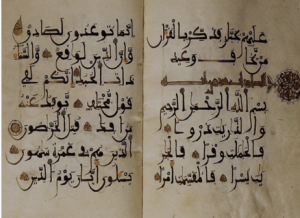 عليهم بجبار فذكر بالقرآن
من يخاف وعيد
بسم الله الرحمن الرحيم
والذريت ذروا
فالحملت وقرا فالجر
يت يسرا فالمقسمت أمرا
إنما توعدون لصادق
وإن الدين لوقع والسماء
ذات الحبك إنكم لفي
قول مختلف يؤفك عنه
من أفك قتل الخرصون
الذين هم في غمرة ساهون
يسلون أيان يوم الدين